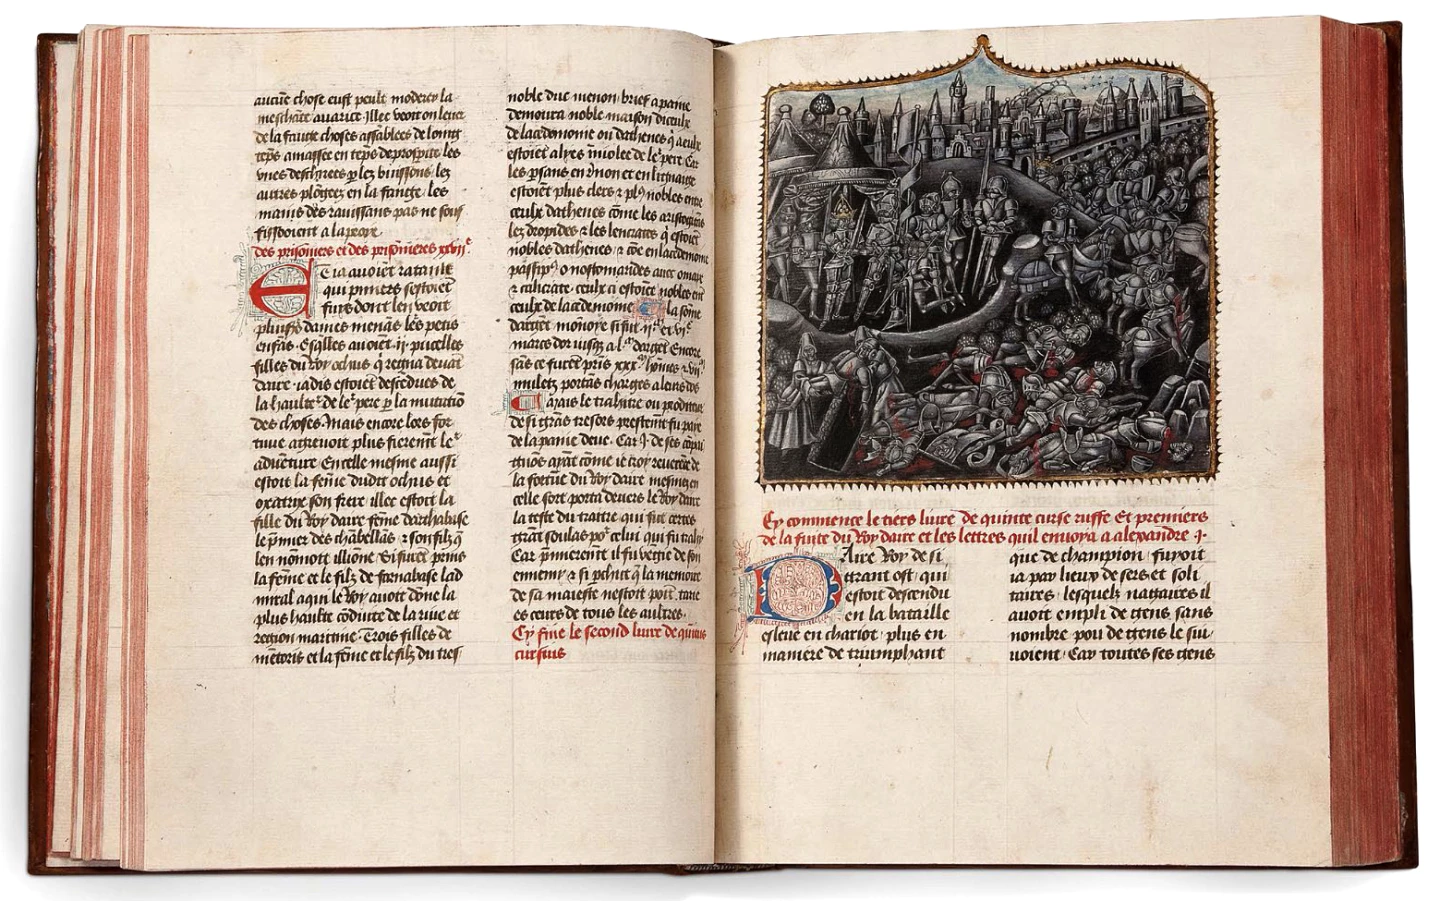 aucūe chose eust peult moderer la
meschāte auarice Illec veoit on leuer
de la frange choses assablees de long
tēps amassee en tēps de prosp̄ite les
vnes deschirees p̱ lez buissōns lez
autres plōgeez en la fange. les
mains des rauissans pas ne souf
fissoient a la proye.
des prisoniers et des prisōnieres xxvii
E
Ia auoiēt
qui p̄miers
furs dont len veoit
plusrs̄ dames menās lers̄ petis
enfās. Esqlles auoiēt .ii. pucelles
filles du Roy ochus q̄ regna deuāt
daire. iadis estoiēt descēdues de
la haultesr̄ de ler̄ pere p̱ la mutatiō
des choses. Mais encore lors for
tune agreuoit plus fieremēt ler̄
aduēture. En celle mesme aussi
estoit la fēme dudit ochus et
oxatrix son frere. illec estoit la
fille du Roy daire fēme darthabase
le p̄mier des chābellās. & son filz q̄
len nōmoit illione. Si furēt prins
la fēme et le filz de farnabase lad
miral a qui le Roy auoit dōne la
plus haulte cōduite de la riue et
region maritime. Trois filles de
mētoris et la fēme et le filz du tres
noble duc menon. brief a paine
demoura noble maison dicculx
de lacedemonie ou dathenes q̄ a eulx
estoiēt alyes uiolee de ler̄ pere Car
les p̱sans en renon et en lignaige
estoiēt plus clers & plȝ nobles entre
ceulx dathenes cōme les aristogitōs
lez dropides & les leucrates q̄ estoiēt
nobles dathenes. & cōe en lacedemone
passipȝ. onostomarides auec omays
& calicrate ceulx ci estoiēt nobles en
ceulx de lacedemonie. C la sōme
dargēt mōnoye si fut .ii.m et vi.c
marcs dor iusq̄ a l.m dargēt Encore
sās ce furēt pris xxx.m hōmes & vii.m
muletz portās charges a leurs dos
Mais le trahitre ou proditeur
de si grās tresors prestemēt fu paye
de la paine deue. Car .i. de ses cōpai
gnōs ayāt cōme ie croy reuerēce de
la fortūe du Roy daire mesmes en
celle sort porta deuers le Roy daire
la teste du traitre qui fut certes
grāt soulas por̄ celui qui fu trahy
Car p̄mieremēt il fu vengie de son
ennemy. & si pchut q̄ la memoire
de sa maieste nestoit poīt tarie
es ceurs de tous les aultres.
Cy fine le second liure de quintus
cursius
Cy commence le tiers liure de quinte curse ruffe Et premiers
de la fuite du Roy daire et les lettres quil enuoya a alexandre .i.
Daire Roy de si
grant ost. qui
estoit descendu
en la bataille
esleue en chariot. plus en
maniere de triumphant
que de champion. fuyoit
ia par lieux desers et soli
taires. lesquelx nagaires il
auoit empli de gens sans
nombre. pou de gens le sui
uoient. Car toutes ses gens